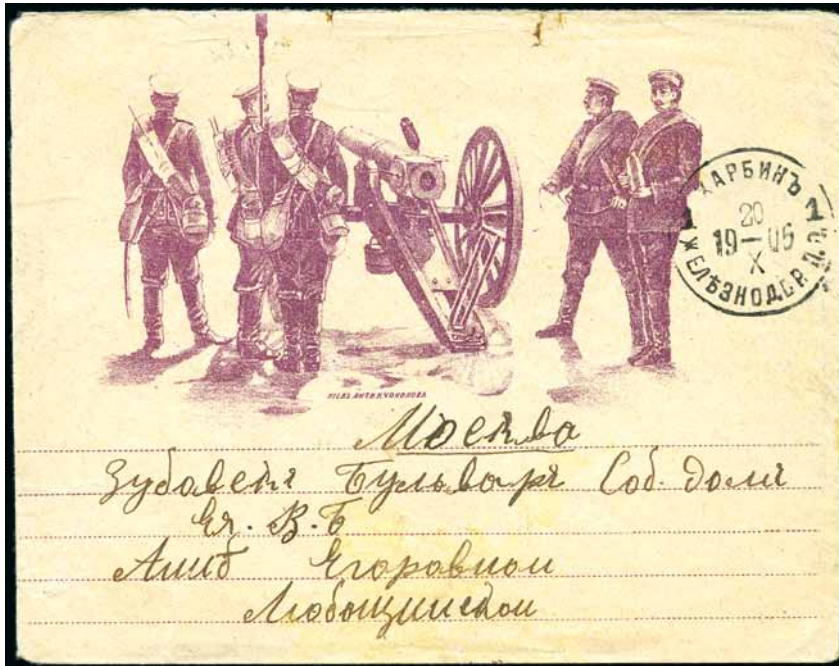 ХАРБИНЪ 1
20
19—05
X
ЖЕЛѢЗНОДОР.
Москва
Бульваръ Соб. домъ
Ея. В-Б
Аннѣ Егоровной
Любощинской